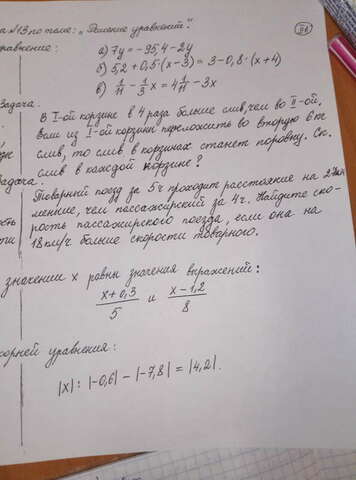 а №13 по теме: „Решение уравнений".
уравнение:
а) 7y = -95,4 - 2y
б) 5,2 + 0,5·(x-3) = 3 - 0,8·(x+4)
в) 1/11 - 1/3 x = 4 1/11 - 3x
Задача.
В I-ой корзине в 4 раза больше слив, чем во II-ой.
Если из I-ой корзины переложить во вторую 6 кг
слив, то слив в корзинах станет поровну. Ск.
слив в каждой корзине?
Задача.
Товарный поезд за 5ч проходит расстояние на
меньшее, чем пассажирский за 4ч. Найдите ско-
рость пассажирского поезда, если она на
18 км/ч больше скорости товарного.
значении x равны значения выражений:
x+0,3/5 и x-1,2/8
корней уравнения:
|x| : |-0,6| - |-7,8| = |4,2|.